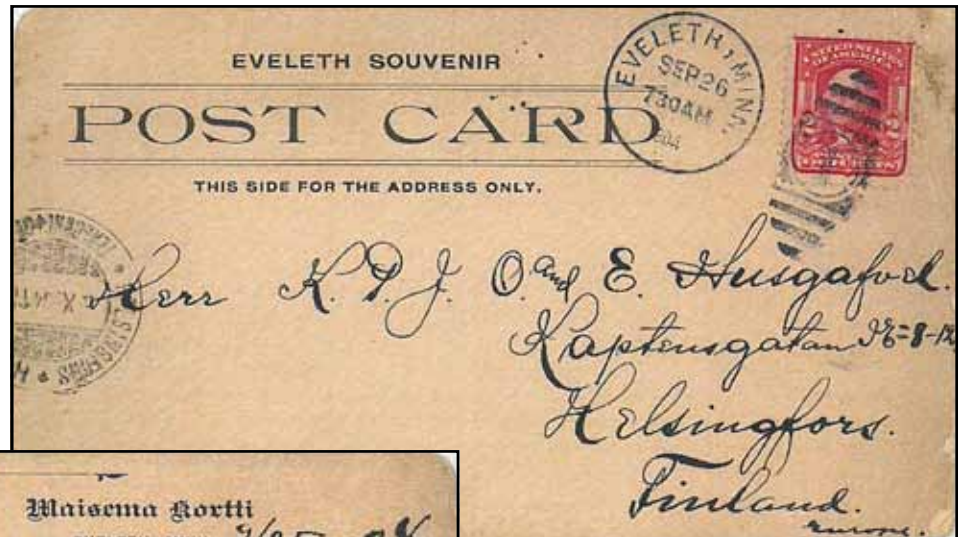 EVELETH SOUVENIR
POST CARD
THIS SIDE FOR THE ADDRESS ONLY.
EVELETH, MINN.
SEP 26
730 AM
UNITED STATES
OF AMERICA
Herr K. P. J. O. and E. Husgafvel.
Kaptensgatan
Helsingfors.
Finland.
Europe.
Maisema Kortti